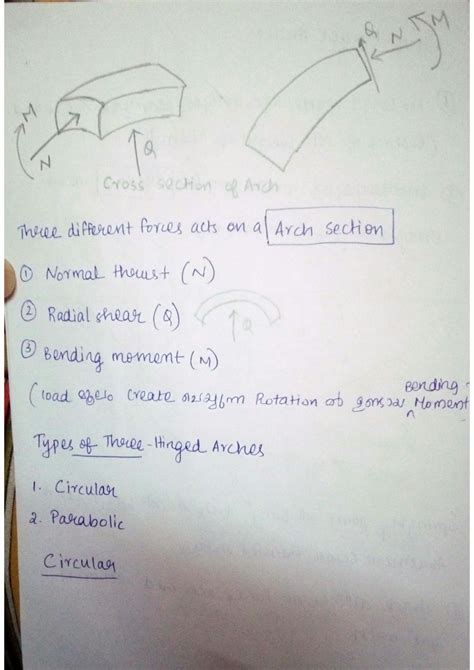 M
N
Q
Q
N
M
Cross section of Arch
Three different forces acts on a Arch section
① Normal thrust (N)
② Radial shear (Q)
Q
③ Bending moment (M)
Bending
(load create Rotation Moment
Types of Three-Hinged Arches
1. Circular
2. Parabolic
Circular